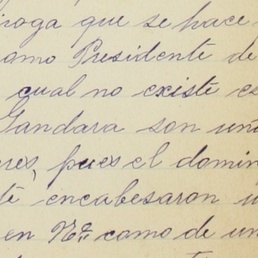 roga que se hace
como Presidente de
cual no existe
Gandara son
pues el domin
encabesaron
en como de un